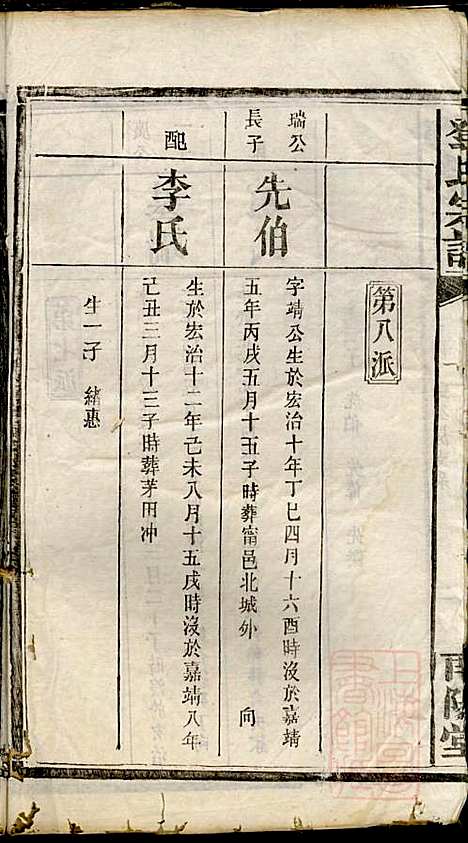 第八派
瑞公
長子
先伯
字靖公生於宏治十年丁巳四月十六酉時沒於嘉靖
五年丙戌五月十五子時葬甯邑北城外 向
配
李氏
生於宏治十二年己未八月十五戌時沒於嘉靖八年
己丑三月十三子時葬茅田冲
生一子 緒惠